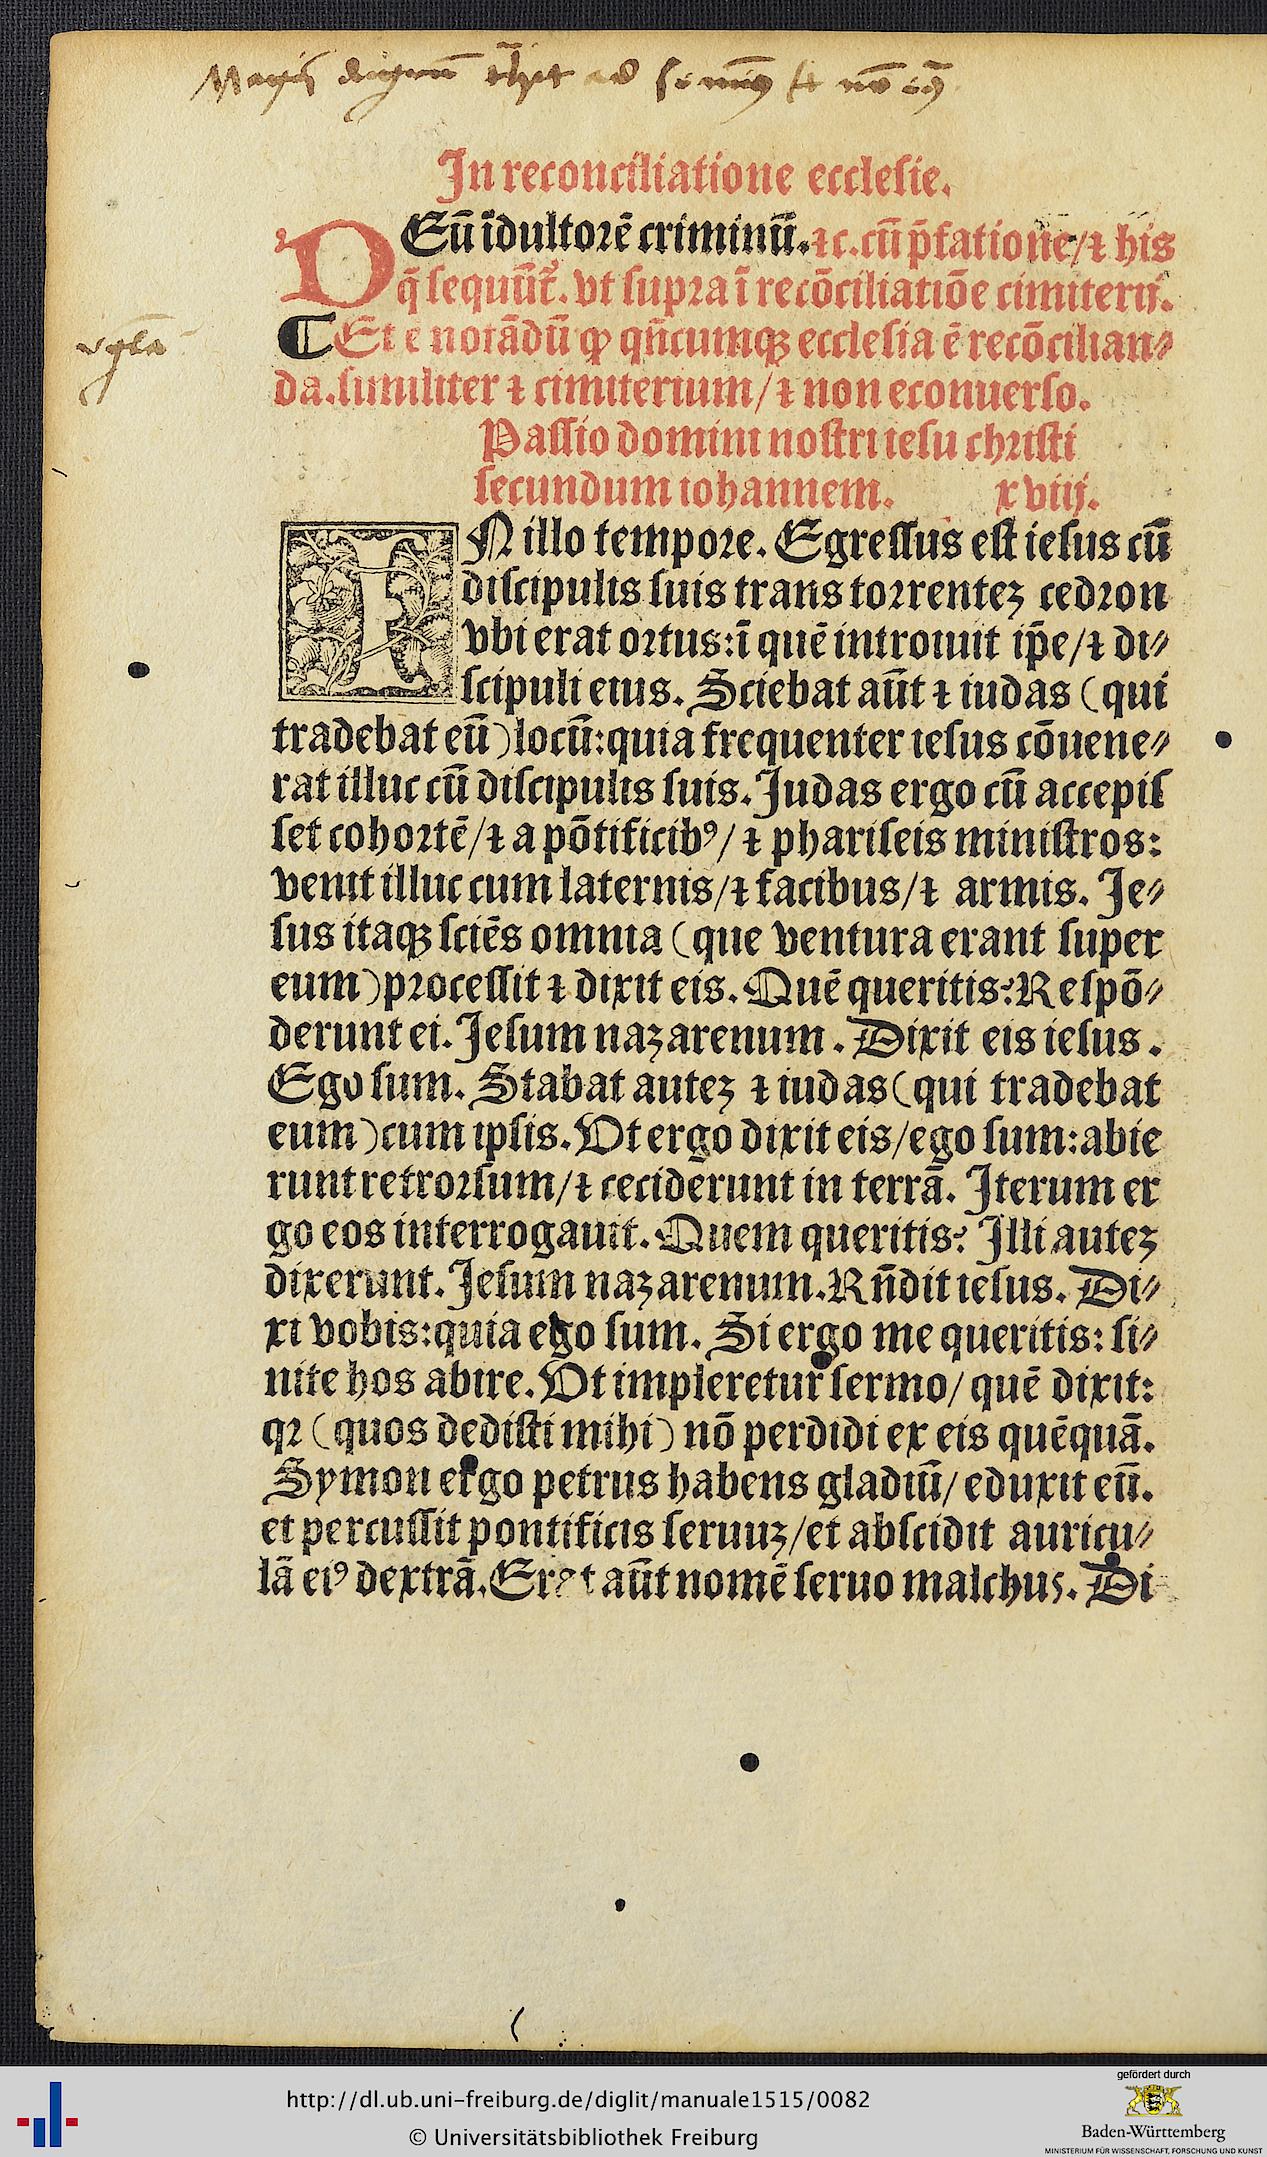 In reconciliatione ecclesie.
DEū īdultorē criminū. ⁊c. cū p̄fatione/⁊ his
q̄ sequūt᷑. vt supra ī recōciliatiōe cimiterij.
¶ Et e notādū ꝙ qn̄cumqꝫ ecclesia ē recōcilian⸗
da. similiter ⁊ cimiterium/⁊ non econuerso.
Passio domini nostri iesu christi
secundum iohannem. xviij.
IN illo tempore. Egressus est iesus cū
discipulis suis trans torrenteꝫ cedron
vbi erat ortus: ī quē introiuit ip̄e/⁊ di⸗
scipuli eius. Sciebat aūt ⁊ iudas (qui
tradebat eū) locū: quia frequenter iesus cōuene⸗
rat illuc cū discipulis suis. Judas ergo cū accepis
set cohortē/⁊ a pōtificibꝰ/⁊ phariseis ministros:
venit illuc cum laternis/⁊ facibus/⁊ armis. Je⸗
sus itaqꝫ sciēs omnia (que ventura erant super
eum) processit ⁊ dixit eis. Quē queritis? Respō⸗
derunt ei. Jesum naꝫarenum. Dixit eis iesus.
Ego sum. Stabat auteꝫ ⁊ iudas (qui tradebat
eum) cum ipsis. Vt ergo dixit eis/ego sum: abie
runt retrorsum/⁊ ceciderunt in terrā. Iterum er
go eos interrogauit. Quem queritis? Illi auteꝫ
dixerunt. Jesum naꝫarenum. Rn̄dit iesus. Di⸗
xi vobis: quia ego sum. Si ergo me queritis: si⸗
nite hos abire. Vt impleretur sermo/quē dixit:
qꝛ (quos dedisti mihi) nō perdidi ex eis quēquā.
Symon ergo petrus habens gladiū/eduxit eū.
et percussit pontificis seruuꝫ/et abscidit auricu⸗
lā eiꝰ dextrā. Erat aūt nomē seruo malchus. Di
http://dl.ub.uni-freiburg.de/diglit/manuale1515/0082
© Universitätsbibliothek Freiburg
gefördert durch
Baden-Württemberg
MINISTERIUM FÜR WISSENSCHAFT, FORSCHUNG UND KUNST